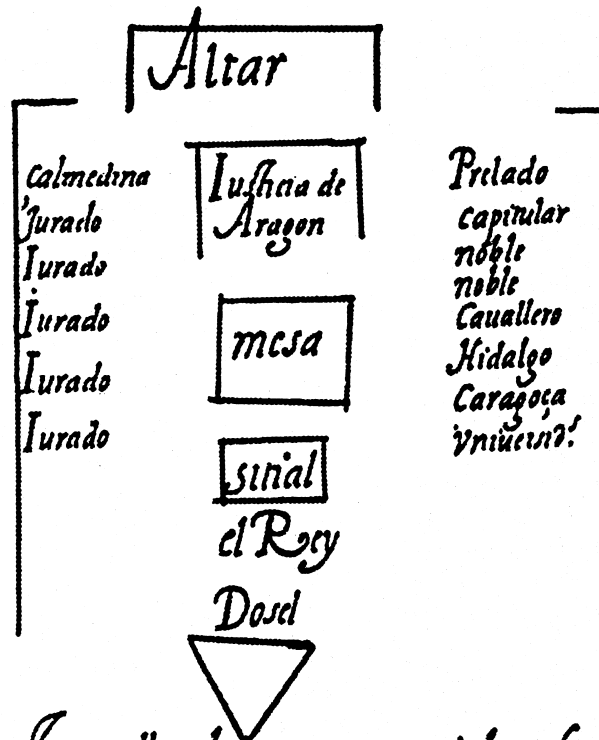 Altar
Calmedina
Jurado
Iurado
Iurado
Iurado
Iurado
Iusticia de
Aragon
mesa
sitial
el Rey
Dosel
Prelado
capitular
noble
noble
Cauallero
Hidalgo
Caragoça